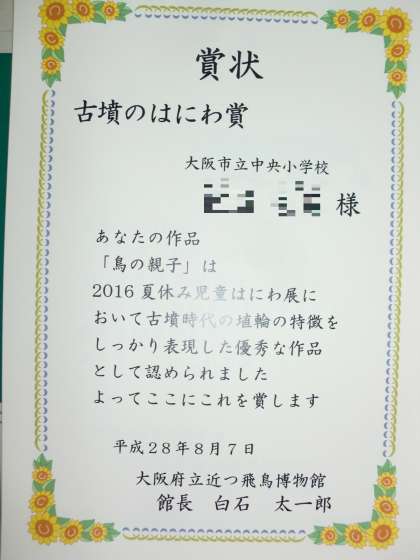 賞状
古墳のはにわ賞
大阪市立中央小学校
様
あなたの作品
「鳥の親子」は
2016夏休み児童はにわ展に
おいて古墳時代の埴輪の特徴を
しっかり表現した優秀な作品
として認められました
よってここにこれを賞します
平成28年8月7日
大阪府立近つ飛鳥博物館
館長 白石 太一郎